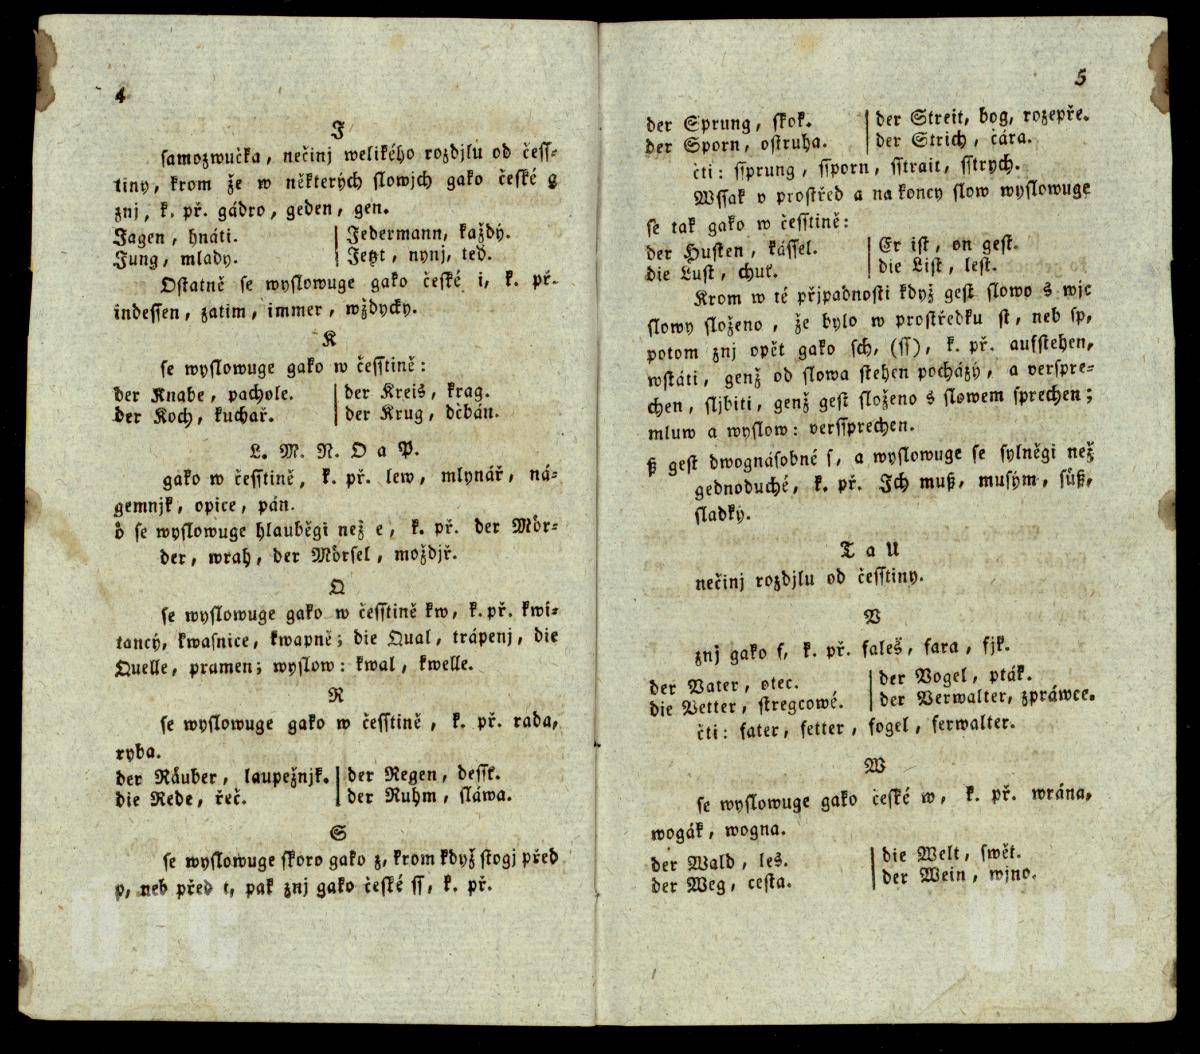 4
J
ſamozwučka, nečinj welikého rozdjlu od čeſſ-
tiny, krom že w některých ſlowjch gako české g
znj, k. př. gádro, geden, gen.
Jagen, hnáti. | Jedermann, každý.
Jung, mlady. | Jetzt, nynj, teď.
Oſtatně ſe wyſlowuge gako české i, k. př.
indeſſen, zatim, immer, wždycky.
K
ſe wyſlowuge gako w čeſſtině:
der Knabe, pachole. | der Kreis, krag.
der Koch, kuchař. | der Krug, džbán.
L. M. N. O a P.
gako w čeſſtině, k. př. lew, mlynář, ná-
gemnjk, opice, pán.
ö ſe wyſlowuge hlauběgi než e, k. př. der Mör-
der, wrah, der Mörſel, moždjř.
Q
ſe wyſlowuge gako w čeſſtině kw, k. př. kwi-
tancý, kwaſnice, kwapně; die Qual, trápenj, die
Quelle, pramen; wyſlow: kwal, kwelle.
R
ſe wyſlowuge gako w čeſſtině, k. př. rada,
ryba.
der Räuber, laupežnjk. | der Regen, deſſť.
die Rede, řeč. | der Ruhm, ſláwa.
S
ſe wyſlowuge ſkoro gako z, krom když ſtogj před
p, neb před t, pak znj gako české ſſ, k. př.
5
der Sprung, ſkok. | der Streit, bog, rozepře.
der Sporn, oſtruha. | der Strich, čára.
čti: ſſprung, ſſporn, ſſtrait, ſſtrych.
Wſſak v proſtřed a na koncy ſlow wyſlowuge
ſe tak gako w čeſſtině:
der Huſten, káſſel. | Er iſt, on geſt.
die Luſt, chuť. | die Liſt, leſt.
Krom w té přjpadnoſti když geſt ſlowo s wjc
ſlowy ſloženo, že bylo w proſtředku ſt, neb ſp,
potom znj opět gako ſch, (ſſ), k. př. aufſtehen,
wſtáti, genž od ſlowa ſtehen pocházý, a verſpre-
chen, ſljbiti, genž geſt ſloženo s ſlowem ſprechen;
mluw a wyſlow: verſſprechen.
ß geſt dwognáſobné ſ, a wyſlowuge ſe ſylněgi než
gednoduché, k. př. Ich muß, muſým, ſüß,
ſladký.
T a U
nečinj rozdjlu od čeſſtiny.
V
znj gako f, k. př. faleš, fara, fjk.
der Vater, otec. | der Vogel, pták.
die Vetter, ſtregcowé. | der Verwalter, zpráwce.
čti: fater, fetter, fogel, ferwalter.
W
ſe wyſlowuge gako české w, k. př. wrána,
wogák, wogna.
der Wald, les. | die Welt, ſwět.
der Weg, ceſta. | der Wein, wjno.
UJC
UJC